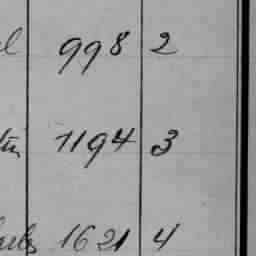 998 2
1194 3
1621 4